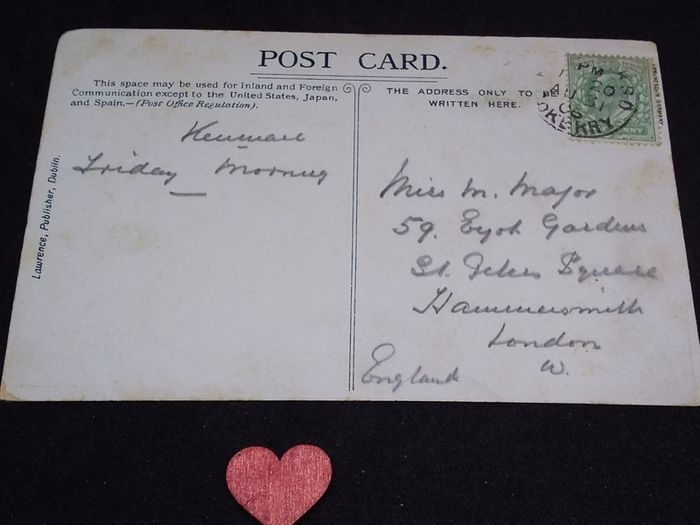 POST CARD.
This space may be used for Inland and Foreign
Communication except to the United States, Japan,
and Spain.—(Post Office Regulation).
THE ADDRESS ONLY TO BE
WRITTEN HERE.
Kenmare
Friday Morning
Miss M. Major
59. Eyot Gardens
St. Peters Square
Hammersmith
London
W.
England
Lawrence, Publisher, Dublin.
PM
KERRY